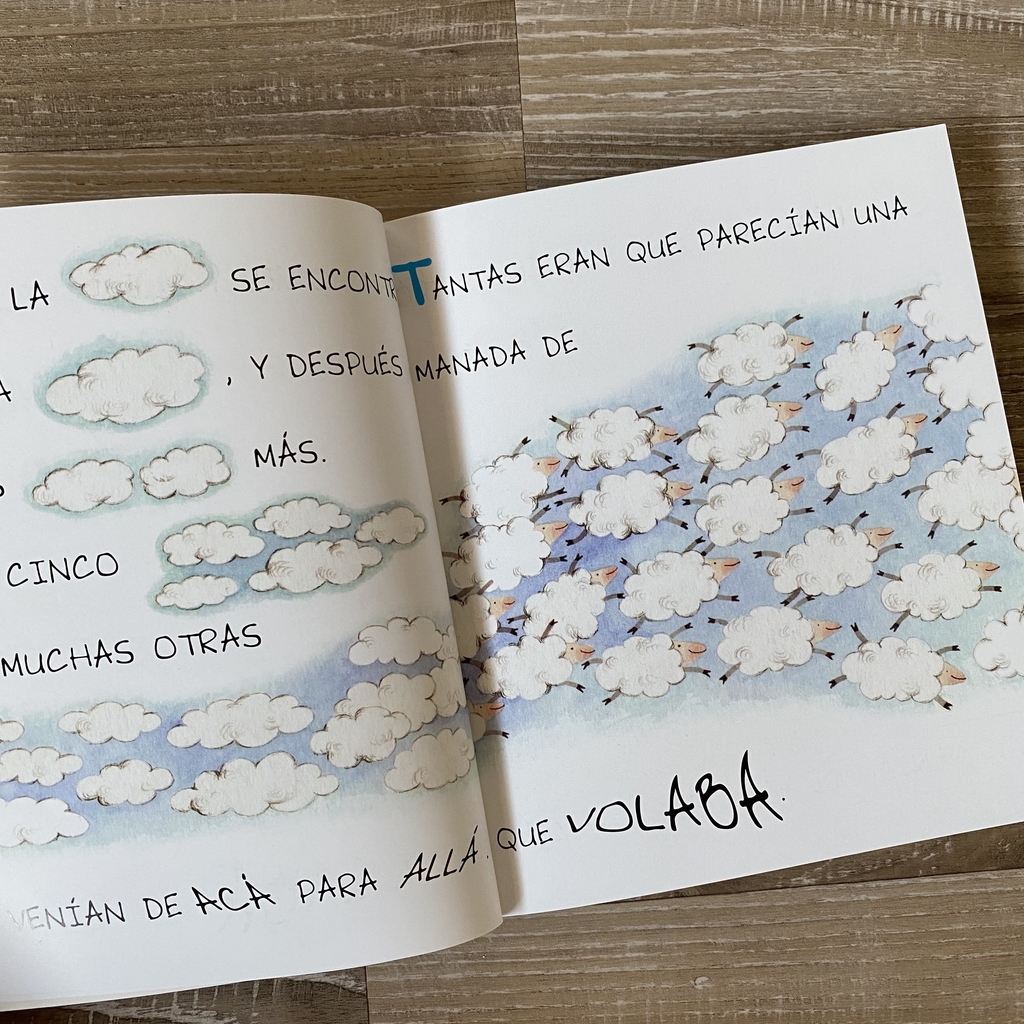 LA SE ENCONTR
A , Y DESPUÉS
MÁS.
CINCO
MUCHAS OTRAS
VENÍAN DE ACÁ PARA ALLÁ.
TANTAS ERAN QUE PARECÍAN UNA
MANADA DE
QUE VOLABA.